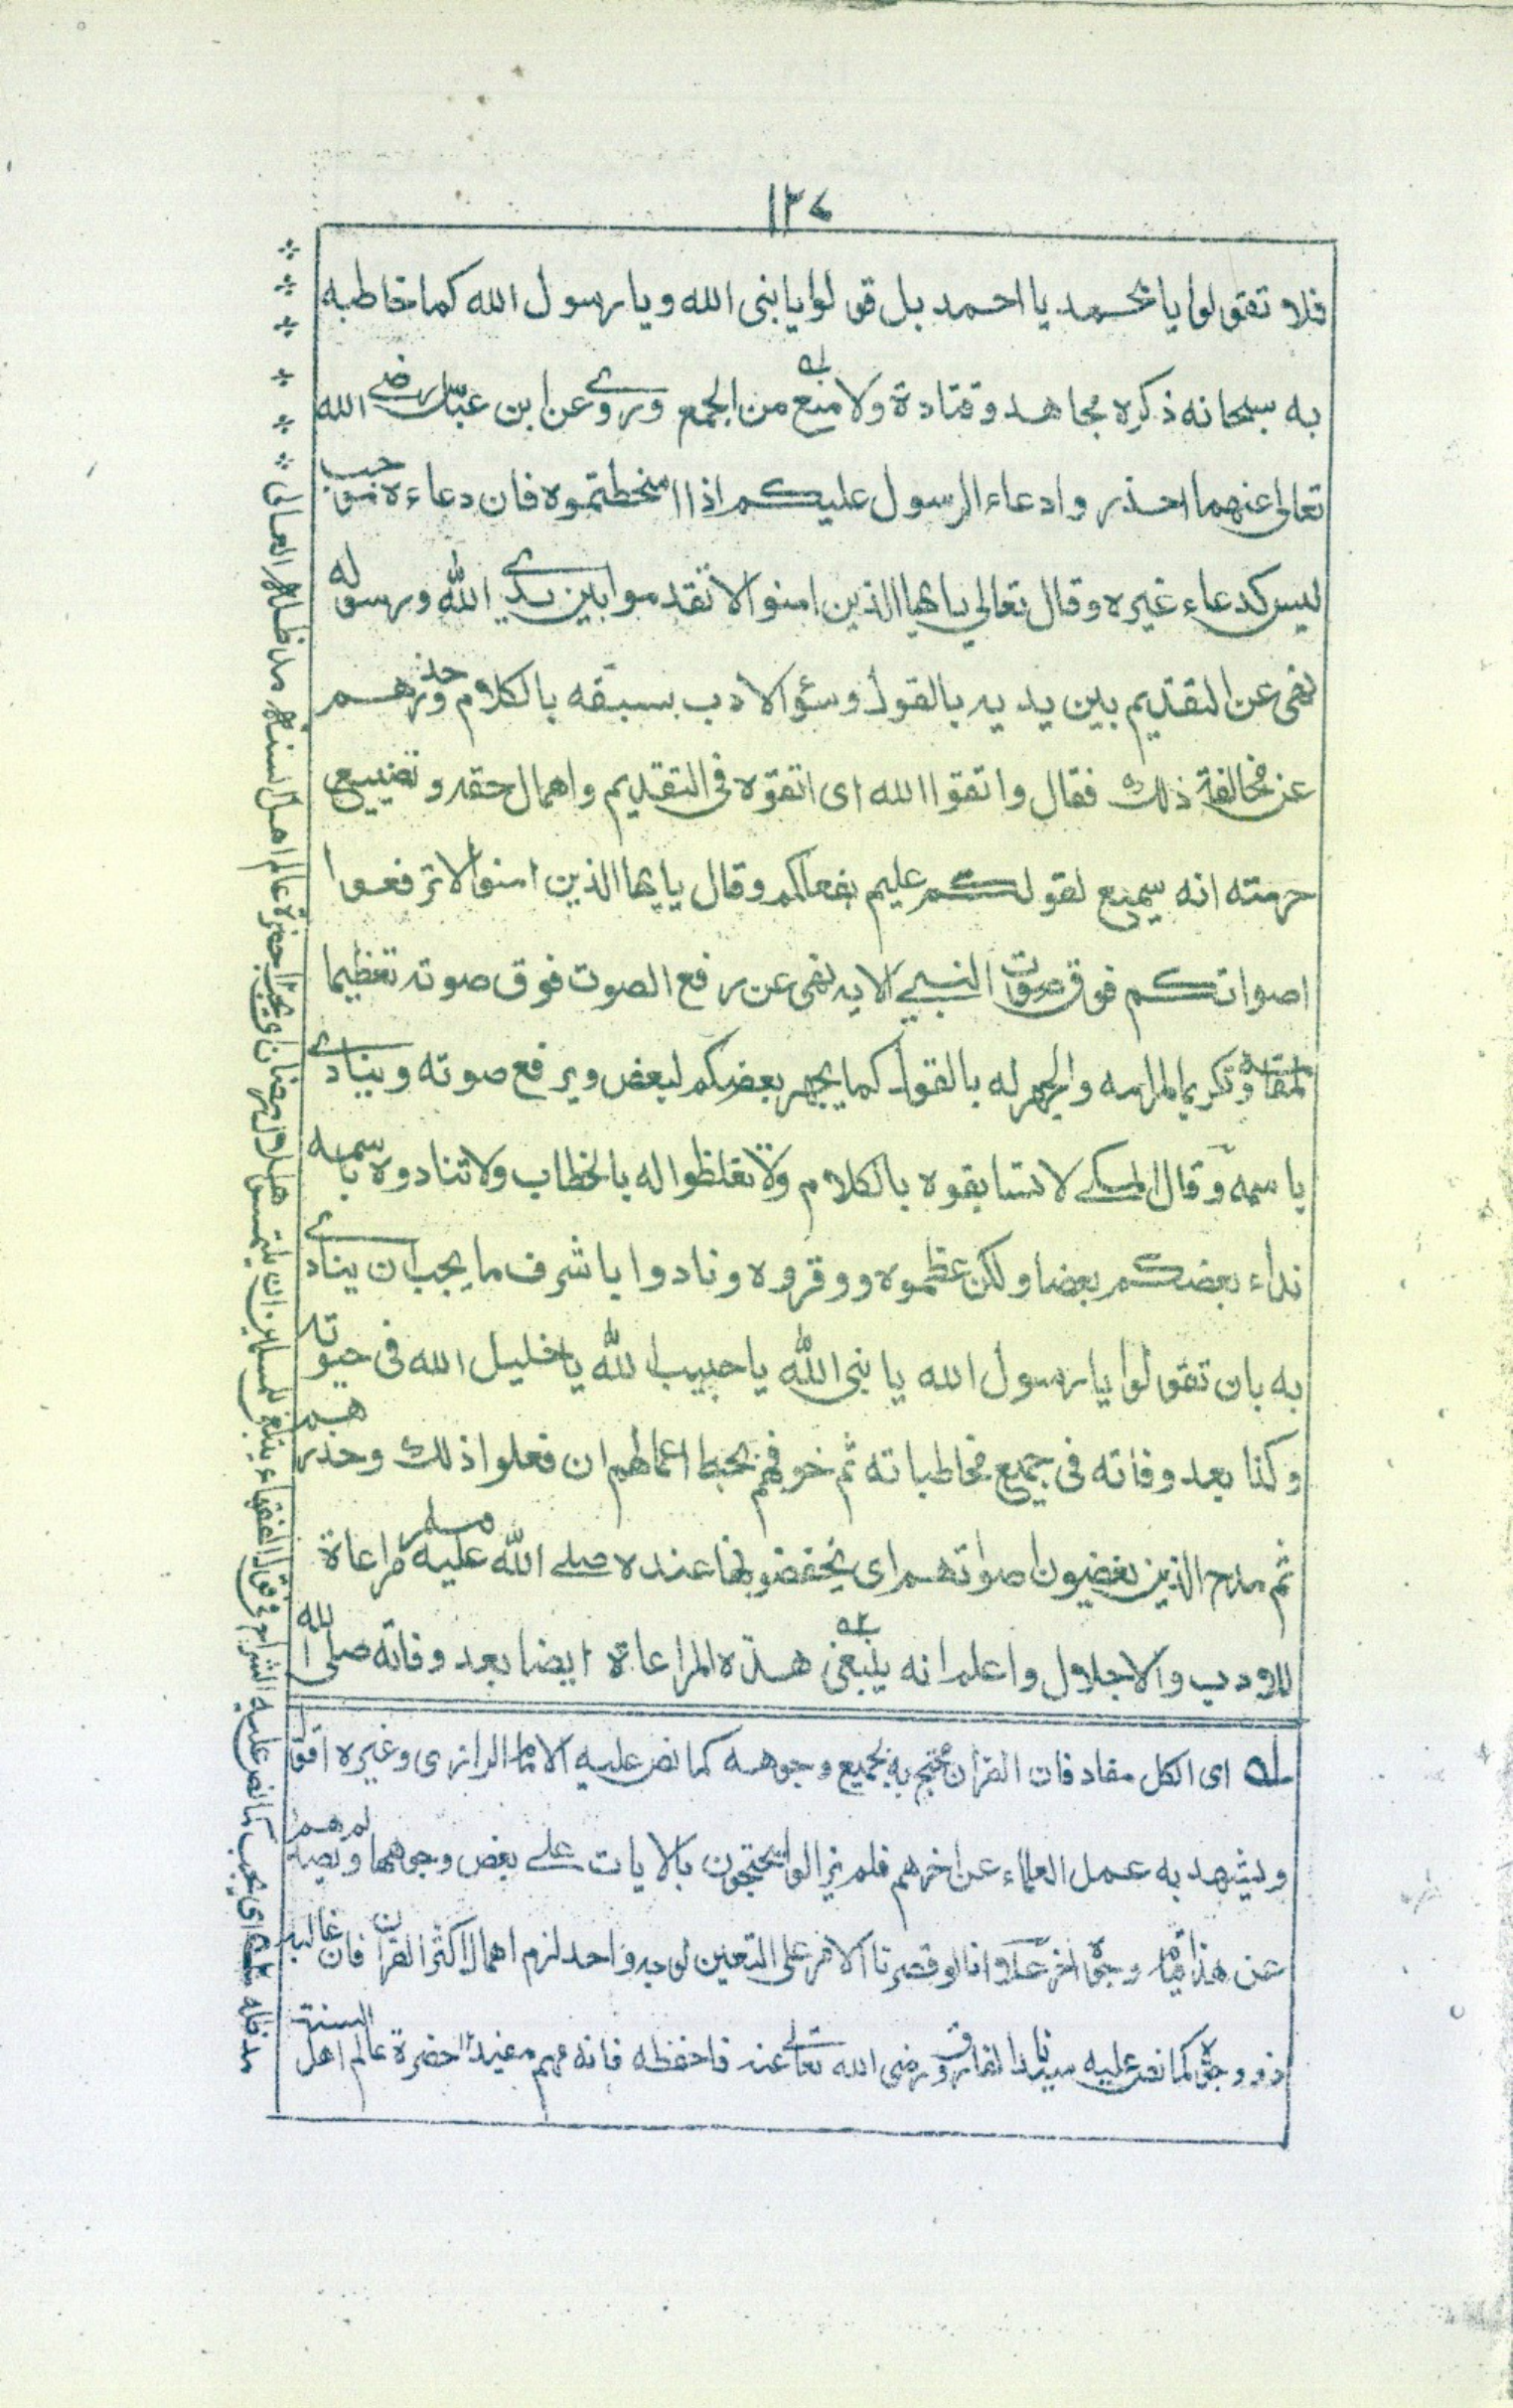 ۱۳۷
فلا تقولوا يا محمد يا احمد بل قولوا يا نبى الله و يا رسول الله كما خاطبه
به سبحانه ذكره مجاهد و قتادة ولا منع له من الجمع وروى عن ابن عباس رضى الله
تعالى عنهما احذروا دعاء الرسول عليكم اذا اسخطتموه فان دعاءه موجب
ليس كدعاء غيره وقال تعالى يايها الذين امنوا لا تقدموا بين يدى الله ورسوله
نهى عن التقديم بين يديه بالقول وسؤ الادب بسبقه بالكلام وحذرهم
عن مخالفة ذلك فقال واتقوا الله اى اتقوه فى التقديم واهمال حقه وتضييع
حرمته انه سميع لقولكم عليم بفعلكم وقال يايها الذين امنوا لا ترفعوا
اصواتكم فوق صوت النبى الايه نهى عن رفع الصوت فوق صوته تعظيما
لمقامه وتكريما لمرامه والجهر له بالقول كما يجهر بعضكم لبعض ويرفع صوته وينادى
باسمه وقال المكى لا تسابقوه بالكلام ولا تغلظوا له بالخطاب ولا تنادوه باسمه
نداء بعضكم بعضا ولكن عظموه ووقروه ونادوا باشرف ما يجب ان ينادى
به بان تقولوا يا رسول الله يا نبى الله يا حبيب الله يا خليل الله فى حيوته
وكذا بعد وفاته فى جميع مخاطباته ثم خوفهم بحبط اعمالهم ان فعلوا ذلك وحذرهم
ثم مدح الذين يغضون اصواتهم اى يخفضونها عنده صلى الله عليه وسلم مراعاة
للادب والاجلال واعلم انه ينبغى ۲ه هذه المراعاة ايضا بعد وفاته صلى الله
له اى الكل مفاد فان القران محتج به بجميع وجوهه كما نص عليه الامام الرازى وغيره اقول
ويشهد به عمل العلماء عن اخرهم فلم يزالوا يحتجون بالايات على بعض وجوهها ولم يصدهم
عن هذا قيام وجوه اخر علا وانا لو قصرنا الامر على التعين لوجه واحد لزم اهمال اكثر القران فان غالبه
ذو وجوه كما نص عليه سيدنا الفاروق رضى الله تعالى عنه فاحفظه فانه مهم مفيد ١٢ حضرة عالم اهل السنة
مد ظله ۲ه اى يجب كما نص عليه الشراح فى قول الفقهاء ينبغى للمسلمين ان يلتمسوا هلال رمضان اى يجب ١٢ حضرة عالم اهل السنة مد ظله العالى